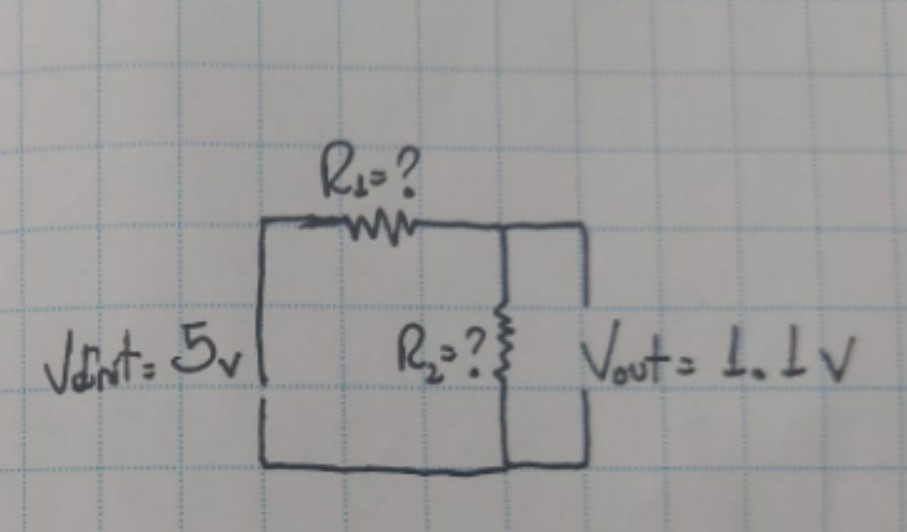 R₁=?
Vint= 5v
R₂=?
Vout= 1.1v